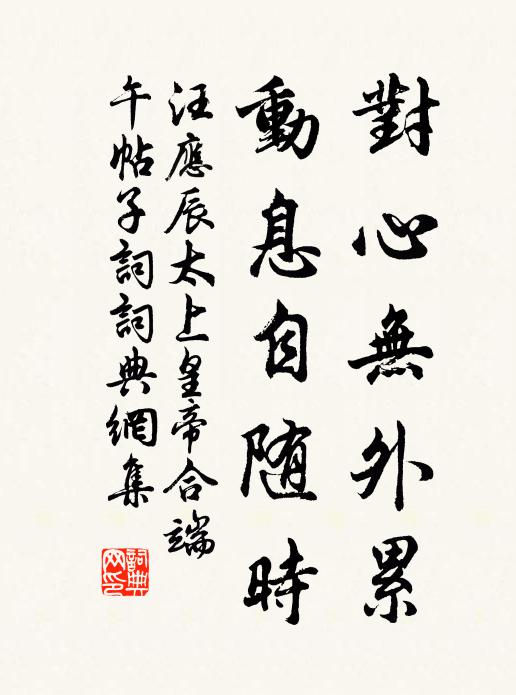 對心無外累
動息自随時
汪應辰太上皇帝合端
午帖子詞詞典網集
詞典
网印